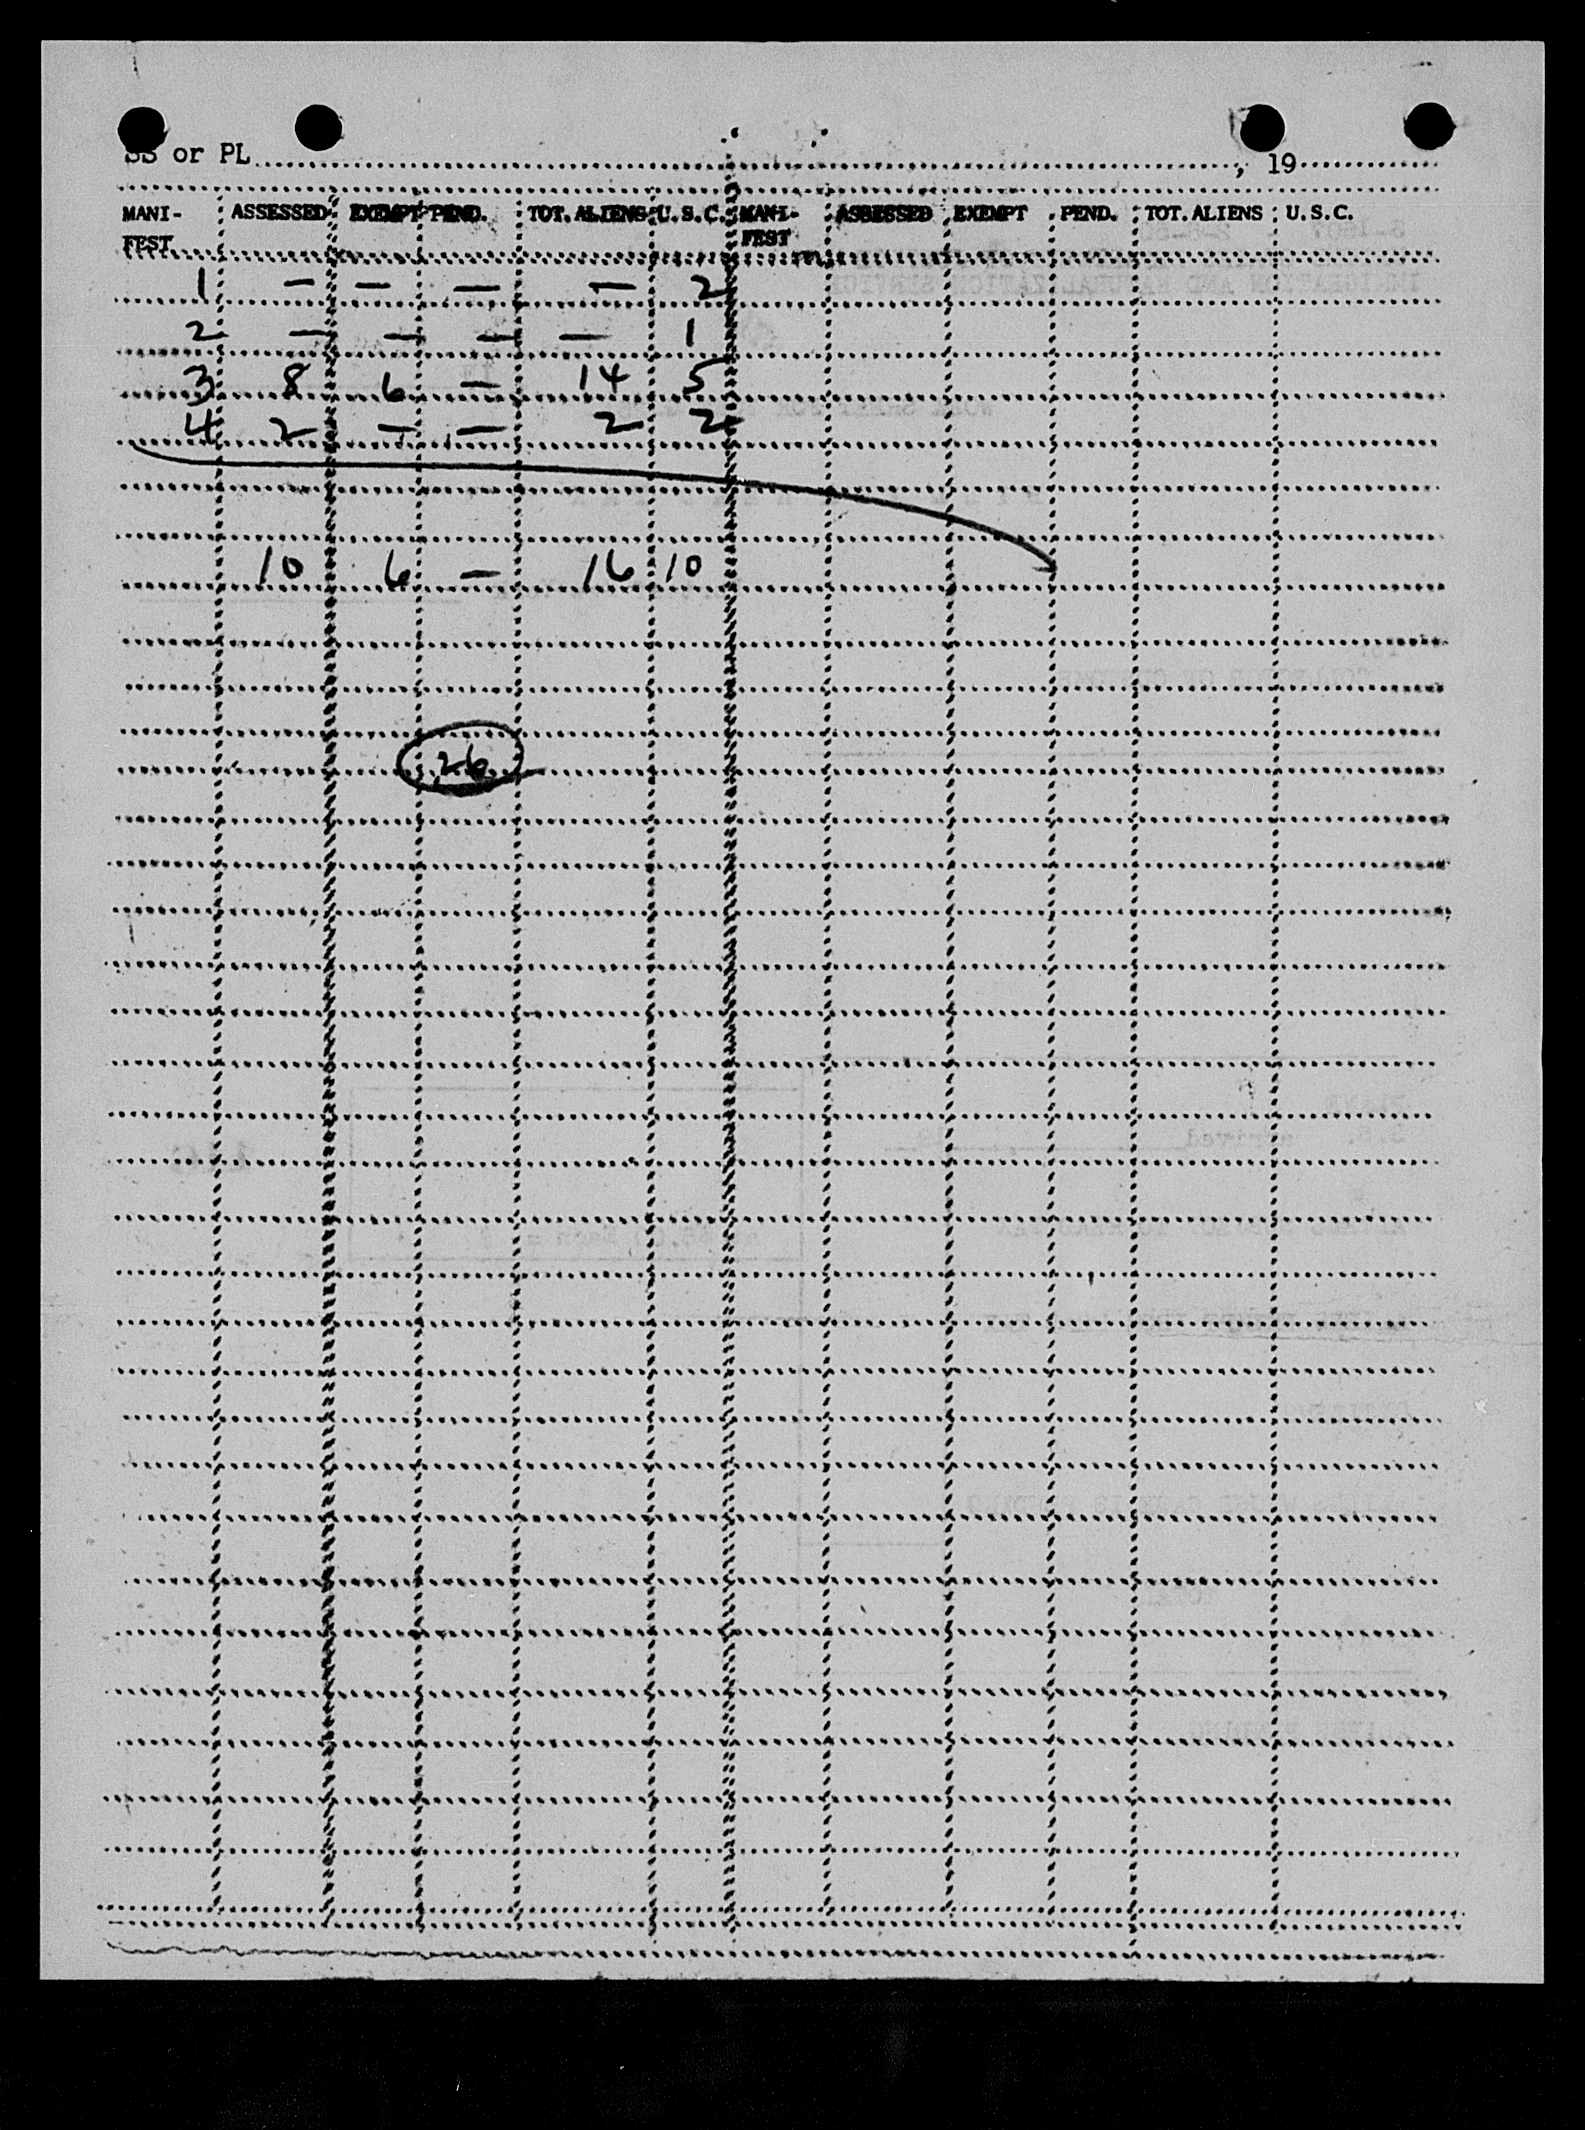 SS or PL , 19
MANI- ASSESSED EXEMPT PEND. TOT. ALIENS U.S.C. MANI- ASSESSED EXEMPT PEND. TOT. ALIENS U.S.C.
FEST FEST
1 — — — — 2
2 — — — — 1
3 8 6 — 14 5
4 2 — — 2 2
10 6 — 16 10
26